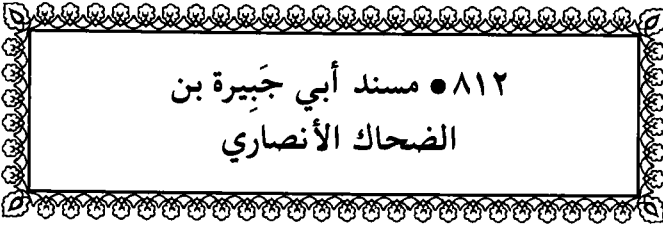 ٨١٢ • مسند أبي جَبِيرة بن
الضحاك الأنصاري